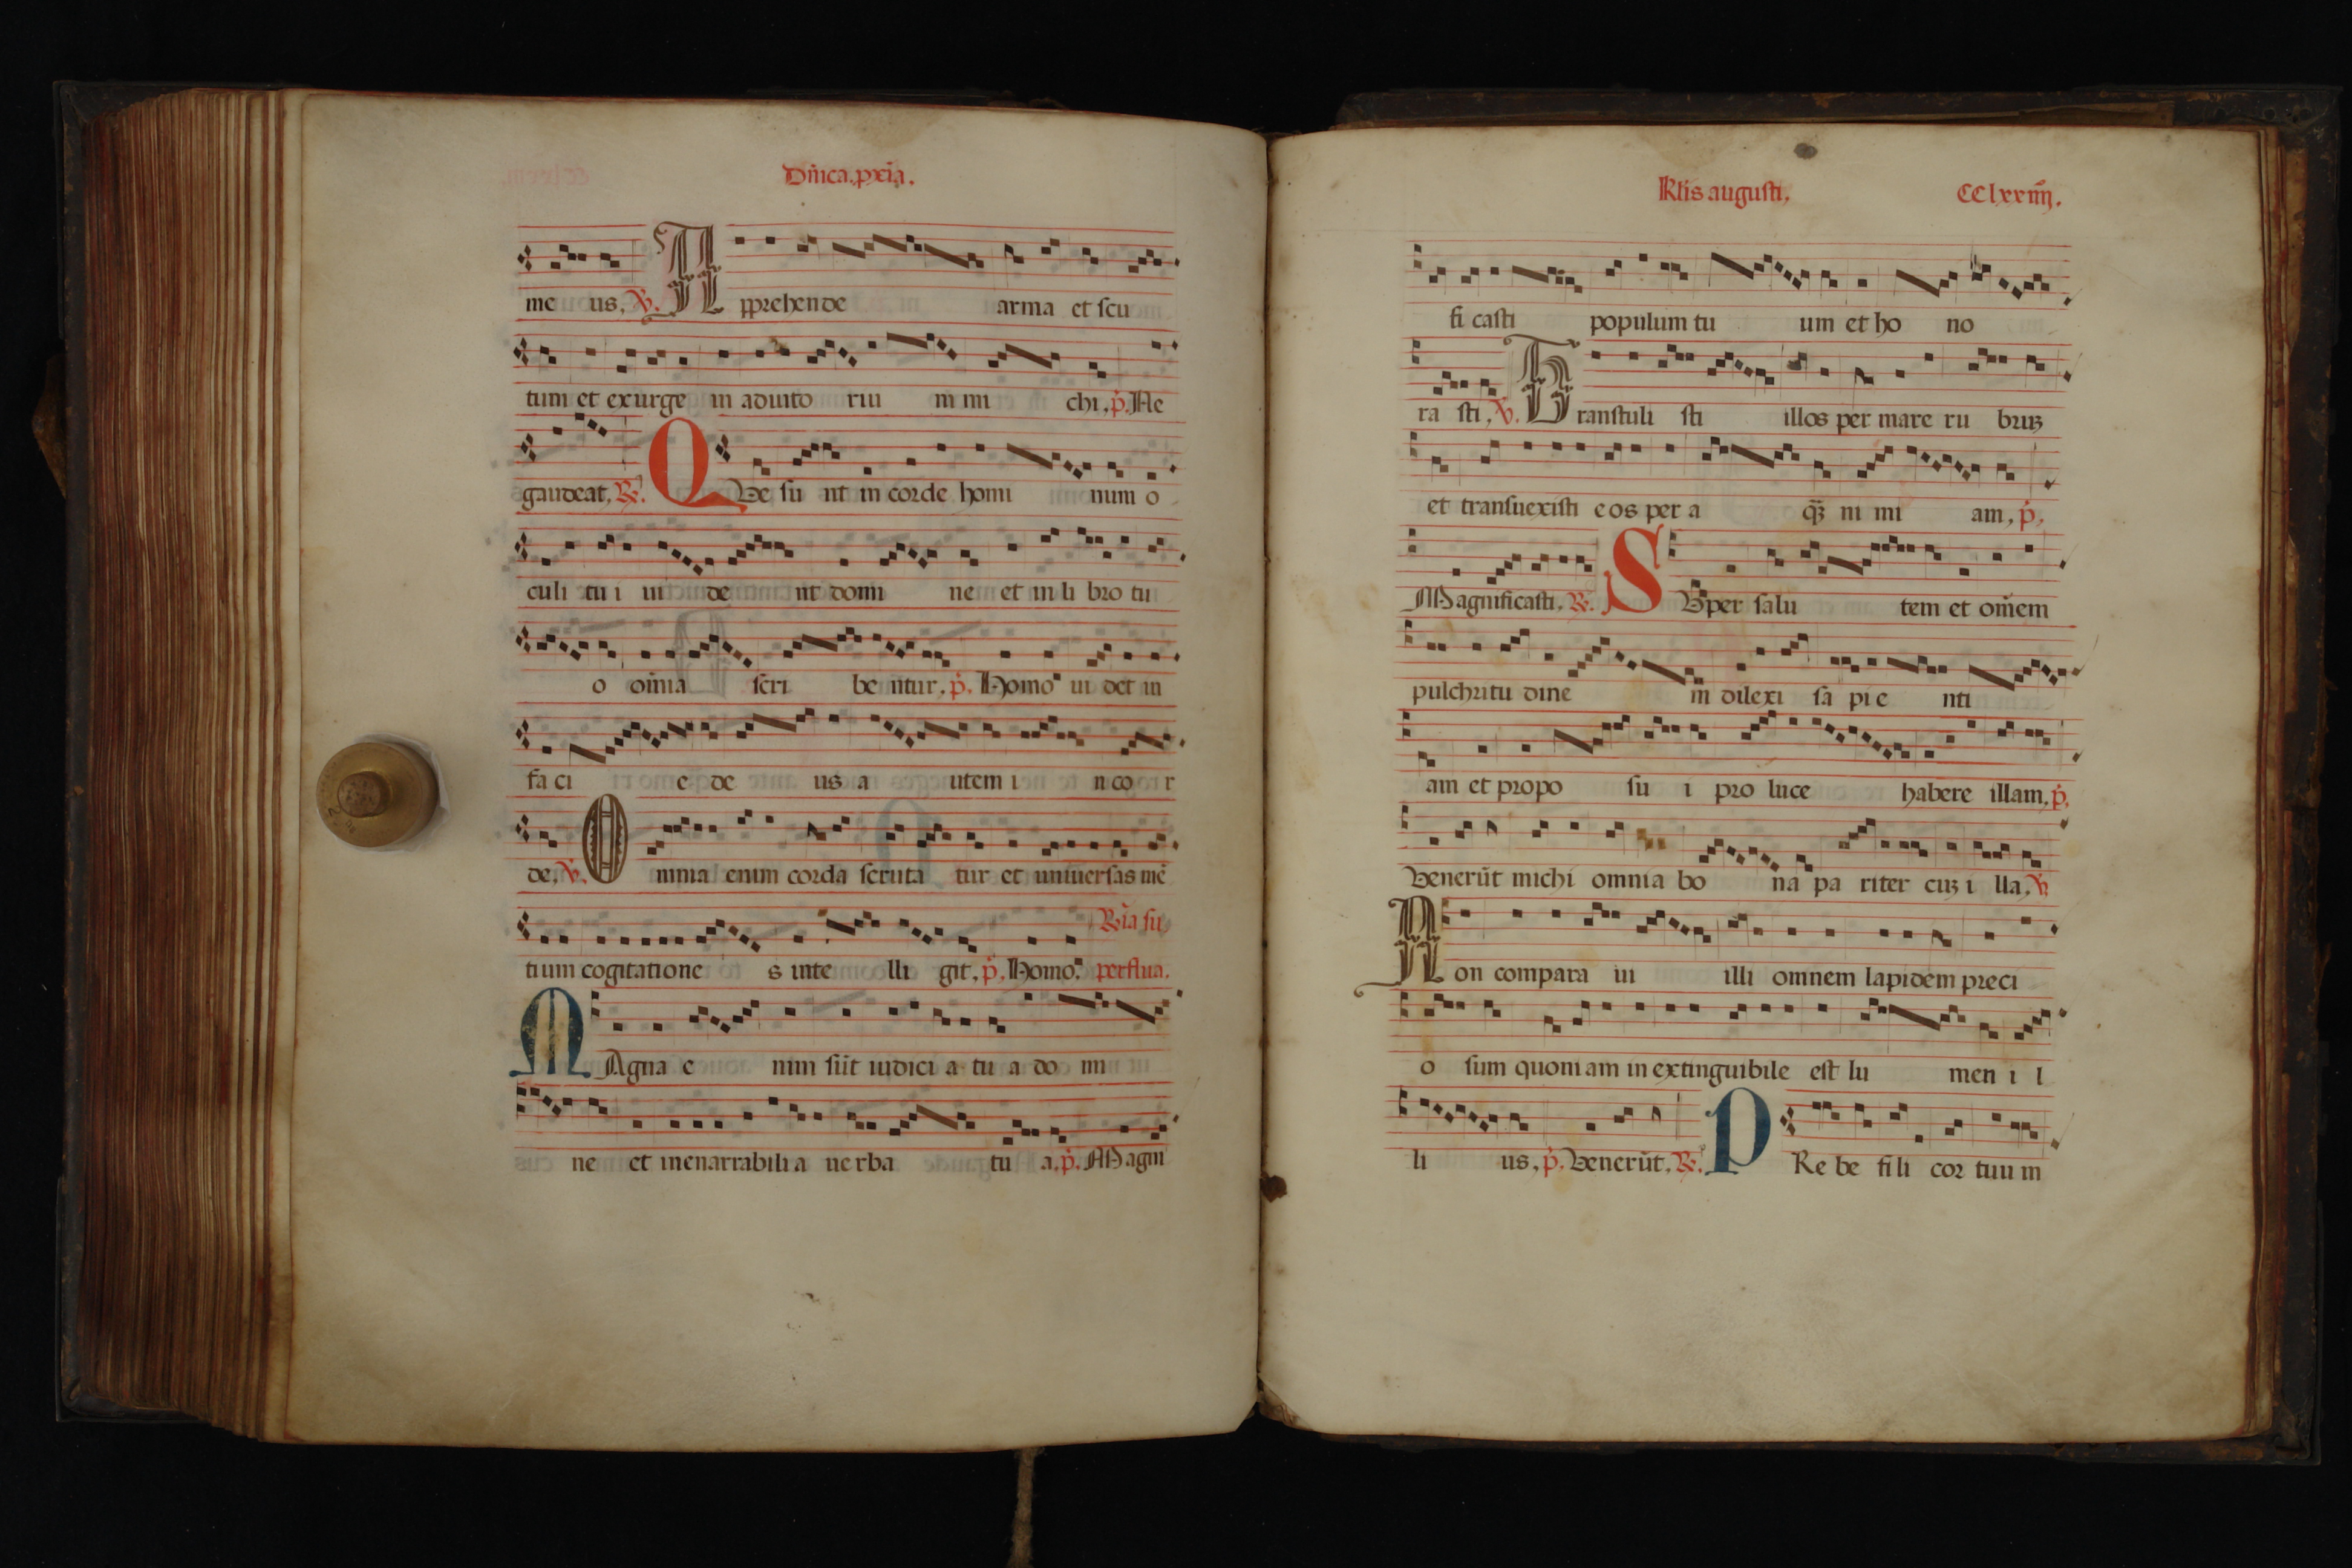 Dn̄ica.pxīa.
me us, v̇. Apprehende arma et scu
tum et exurge in adiuto riu m mi chi, ṗ. Ne
gaudeat, R̷. QVe su nt in corde homi num o
culi tu i ui de nt domi ne et in li bro tu
o om̄ia scri be ntur, ṗ. Homo ui det in
fa ci e de us a utem i n co r
de, v̇. Omnia enim corda scruta tur et uniuersas mē
R̷ia su
tium cogitatione s inte lli git, ṗ. Homo. perflua.
MAgna e nim sūt iudici a tu a do mi
ne et inenarrabili a uerba tu a, ṗ. Magni
Kl̄is augusti,
CClxxiiij.
fi casti populum tu um et ho no
ra sti, v̇. Transtuli sti illos per mare ru bruꝫ
et transuexisti e os per a q̄ꝫ ni mi am, ṗ.
Magnificasti, R̷. SVper salu tem et om̄em
pulchritu dine m dilexi sa pi e nti
am et propo su i pro luce habere illam, ṗ.
Venerūt michi omnia bo na pa riter cuꝫ i lla, v̇
Non compara ui illi omnem lapidem preci
o sum quoniam inextinguibile est lu men i l
li us, ṗ. Venerūt, R̷. PRebe fili cor tuum